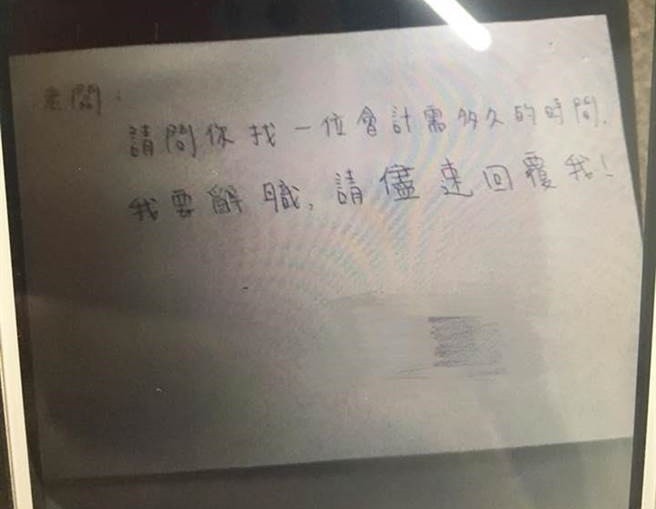 老闆：
請問你找一位會計需多久的時間.
我要辭職, 請儘速回覆我!